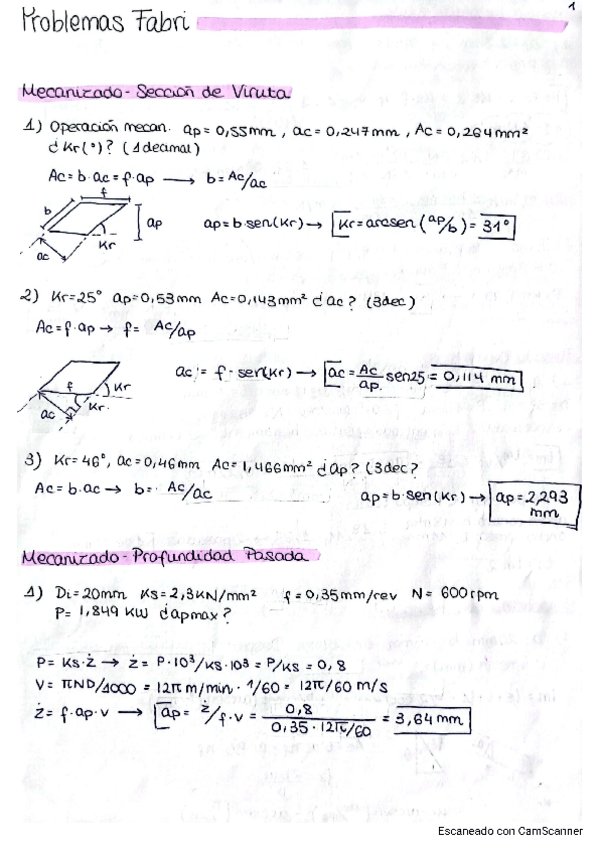 1
Problemas Fabri
Mecanizado - Sección de Viruta
1) Operación mecan. ap = 0,55mm, ac = 0,247mm, Ac = 0,264mm²
¿Kr(°)? (1 decimal)
Ac = b·ac = f·ap → b = Ac/ac
f
b
ap
Kr
ac
ap = b·sen(Kr) → Kr = arcsen(ap/b) = 31°
2) Kr = 25° ap = 0,53mm Ac = 0,143mm² ¿ac? (3dec)
Ac = f·ap → f = Ac/ap
f
Kr
Kr
ac
ac = f·sen(Kr) → ac = Ac/ap sen25 = 0,114 mm
3) Kr = 46°, ac = 0,46mm Ac = 1,466mm² ¿ap? (3dec?
Ac = b·ac → b = Ac/ac
ap = b·sen(Kr) → ap = 2,293 mm
Mecanizado - Profundidad Pasada
1) Di = 20mm Ks = 2,3KN/mm² f = 0,35mm/rev N = 600rpm
P = 1,849 KW ¿apmax?
P = Ks·ż → ż = P·10³/Ks·10³ = P/Ks = 0,8
V = πND/1000 = 12π m/min · 1/60 = 12π/60 m/s
ż = f·ap·v → ap = ż/f·v = 0,8 / 0,35·12π/60 = 3,64 mm
Escaneado con CamScanner